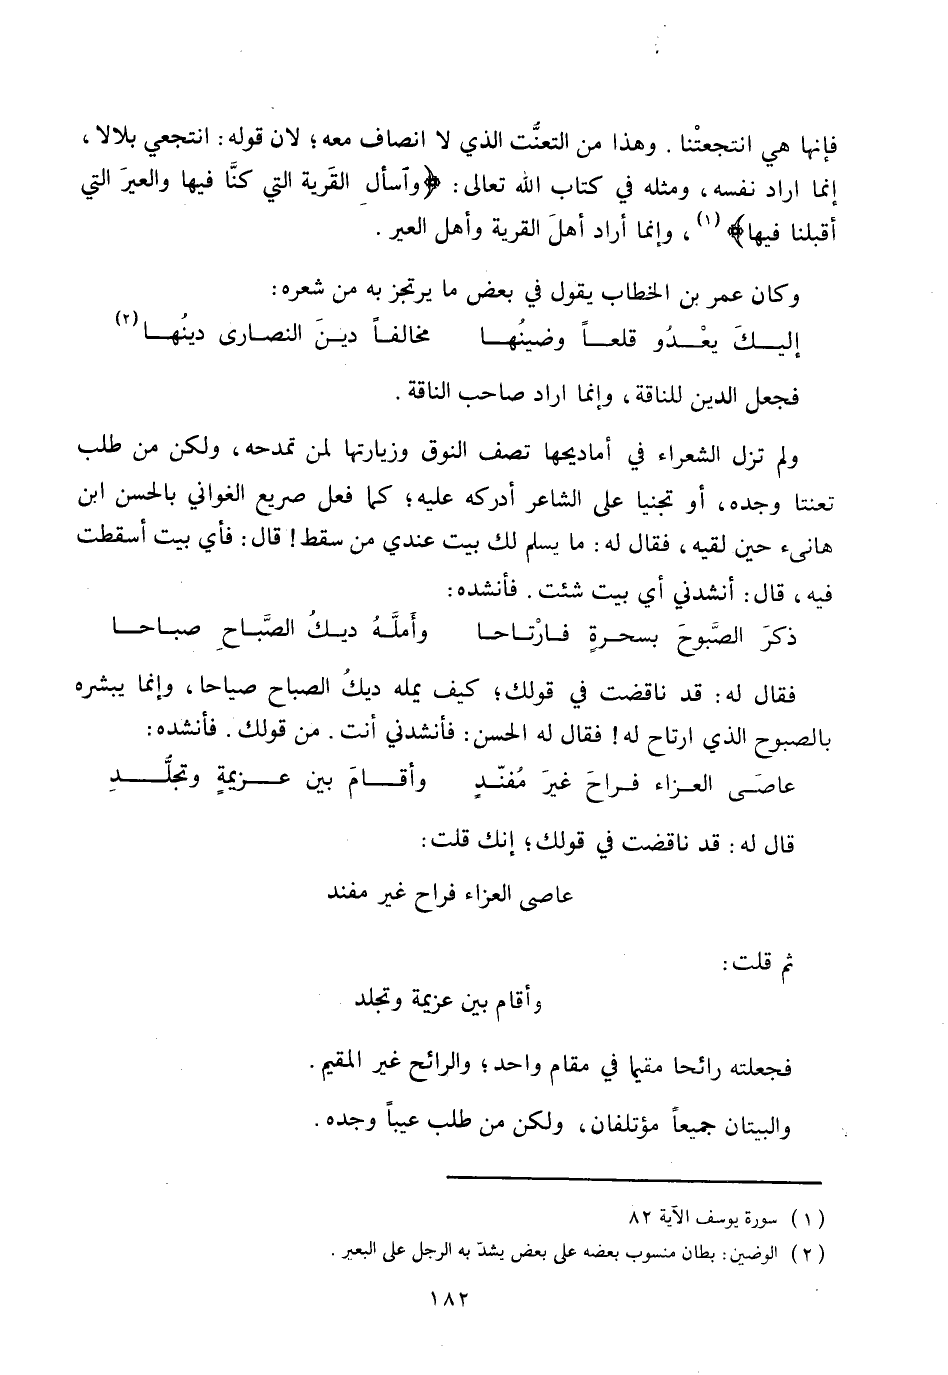 فإنها هي انتجعتْنا . وهذا من التعنُّت الذي لا انصاف معه؛ لان قوله: انتجعي بلالا ،
إنما اراد نفسه، ومثله في كتاب الله تعالى: ﴿وآسأل القَرية التي كنَّا فيها والعيرَ التي
أقبلنا فيها﴾ (١) ، وإنما أراد أهلَ القرية وأهل العير .
وكان عمر بن الخطاب يقول في بعض ما يرتجز به من شعره:
إليـــكَ يعْـــدُو قلعـــاً وضينُهـــا مخالفـاً ديـنَ النصـارى دينُهـا (٢)
فجعل الدين للناقة ، وإنما اراد صاحب الناقة .
ولم تزل الشعراء في أماديحها تصف النوق وزيارتها لمن تمدحه، ولكن من طلب
تعنتا وجده، أو تجنيا على الشاعر أدركه عليه؛ كما فعل صريع الغواني بالحسن ابن
هانىء حين لقيه ، فقال له: ما يسلم لك بيت عندي من سقط! قال: فأي بيت أسقطت
فيه ، قال: أنشدني أي بيت شئت . فأنشده:
ذكرَ الصَّبوحَ بسحرةٍ فـارْتـاحـا وأَملَّـهُ ديـكُ الصَّبـاحِ صبـاحـا
فقال له: قد ناقضت في قولك؛ كيف يمله ديكُ الصباح صياحا، وإنما يبشره
بالصبوح الذي ارتاح له! فقال له الحسن: فأنشدني أنت . من قولك . فأنشده:
عاصَـى العـزاء فـراحَ غيرَ مُفنّـدٍ وأقـــامَ بين عـــزيمةٍ وتجلُّـــدِ
قال له: قد ناقضت في قولك؛ إنك قلت:
عاصى العزاء فراح غير مفند
ثم قلت:
وأقام بين عزيمة وتجلد
فجعلته رائحا مقيما في مقام واحد؛ والرائح غير المقيم .
والبيتان جميعاً مؤتلفان، ولكن من طلب عيباً وجده .
(١) سورة يوسف الآية ٨٢
(٢) الوضين: بطان منسوب بعضه على بعض يشدّ به الرجل على البعير .
١٨٢